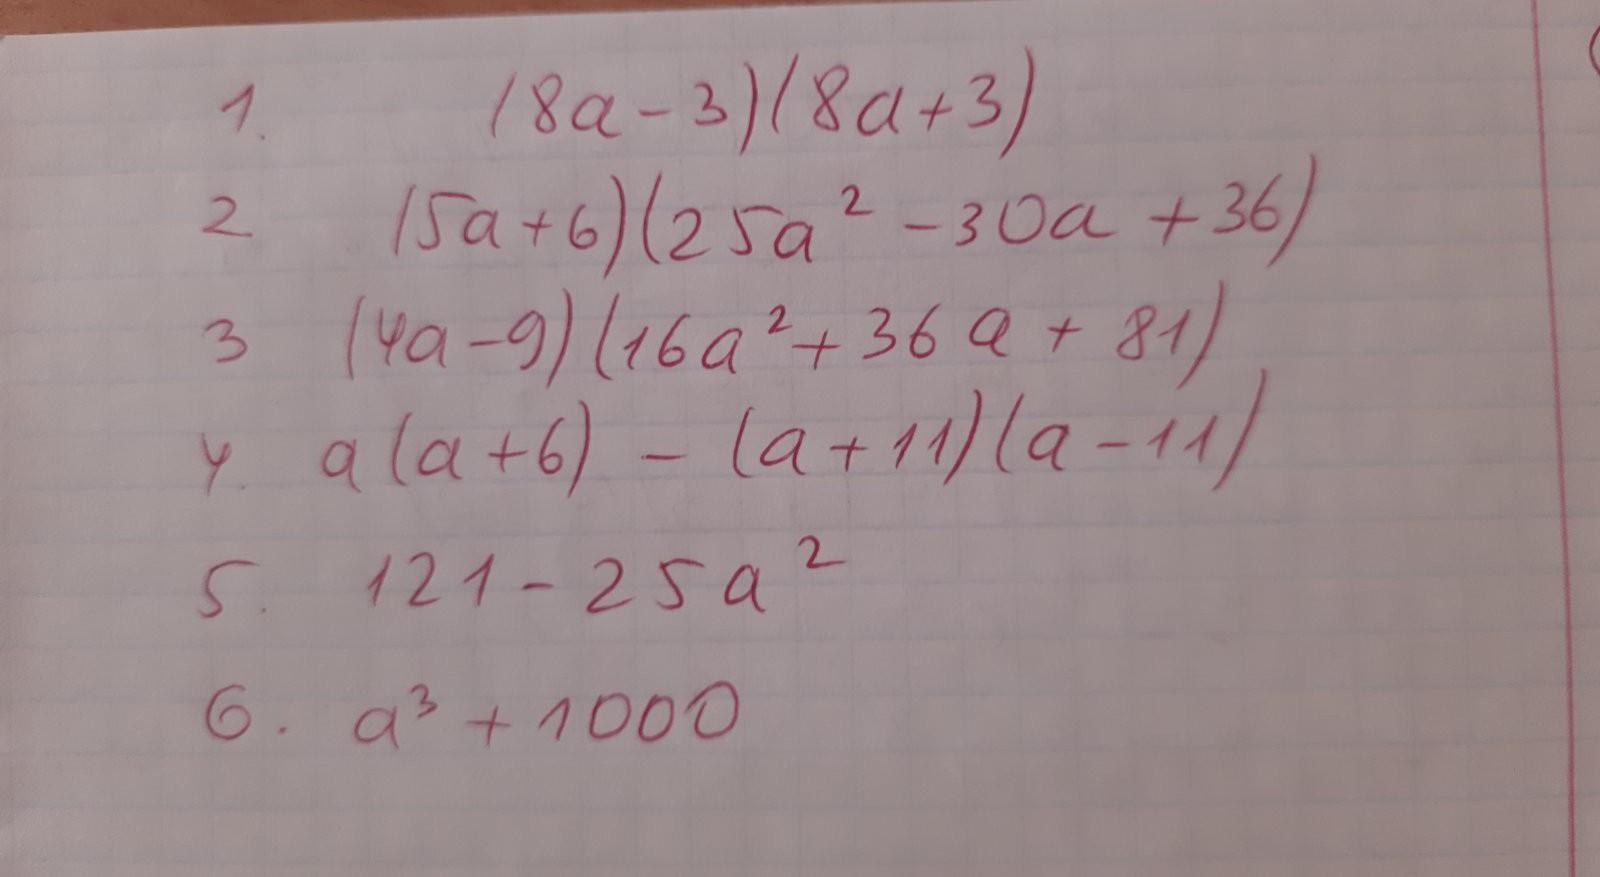 1. (8a - 3)(8a + 3)
2 (5a + 6)(25a² - 30a + 36)
3 (4a - 9)(16a² + 36a + 81)
4. a(a + 6) - (a + 11)(a - 11)
5. 121 - 25a²
6. a³ + 1000